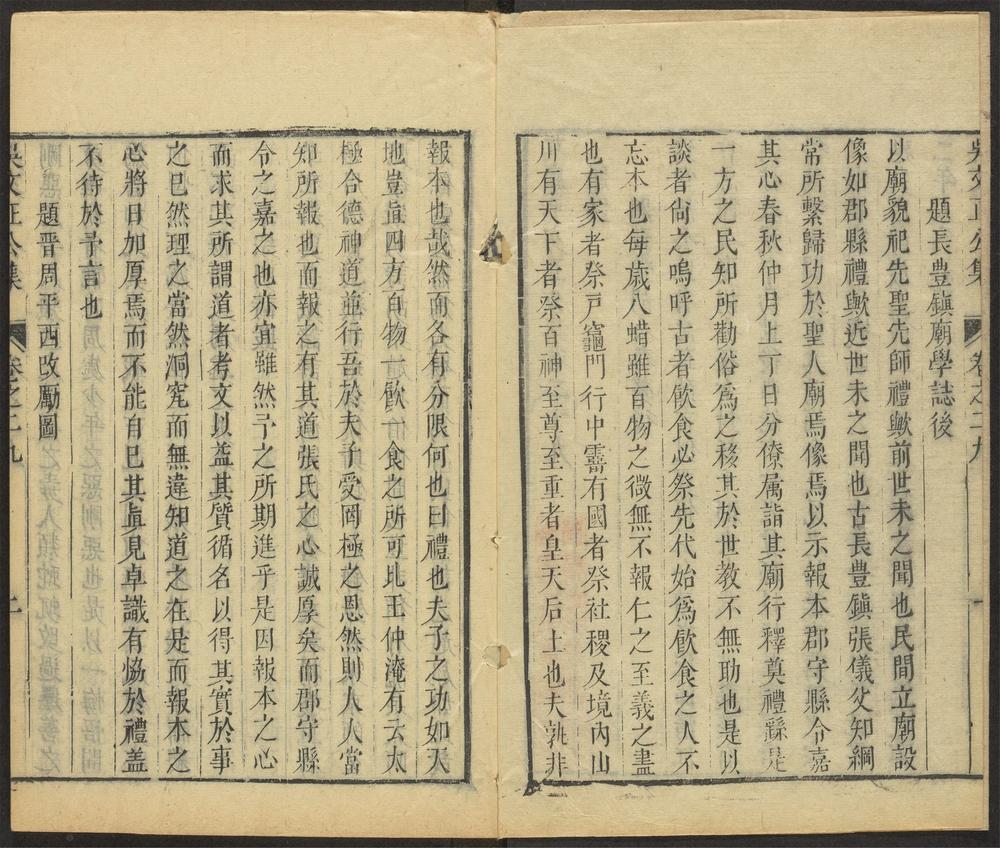 吳文正公集 卷之二九 一
題長豐鎮廟學誌後
以廟貌祀先聖先師禮歟前世未之聞也民間立廟設
像如郡縣禮歟近世未之聞也古長豐鎮張儀父知綱
常所繫歸功於聖人廟焉像焉以示報本郡守縣令嘉
其心春秋仲月上丁日分僚属詣其廟行釋奠禮繇是
一方之民知所勸俗爲之移其於世教不無助也是以
談者尙之嗚呼古者飲食必祭先代始爲飲食之人不
忘本也每歲八蜡雖百物之微無不報仁之至義之盡
也有家者祭戸竈門行中霤有國者祭社稷及境內山
川有天下者祭百神至尊至重者皇天后土也夫孰非
報本也哉然而各有分限何也曰禮也夫子之功如天
地豈眞四方百物一飲一食之所可比王仲淹有云太
極合德神道並行吾於夫子受罔極之恩然則人人當
知所報也而報之有其道張氏之心誠厚矣而郡守縣
令之嘉之也亦宜雖然予之所期進乎是因報本之心
而求其所謂道者考文以盖其質循名以得其實於事
之已然理之當然洞究而無違知道之在是而報本之
心將日加厚焉而不能自已其眞見卓識有恊於禮盖
不待於予言也
題晋周平西改勵圖
吳文正公集 卷之二九 二